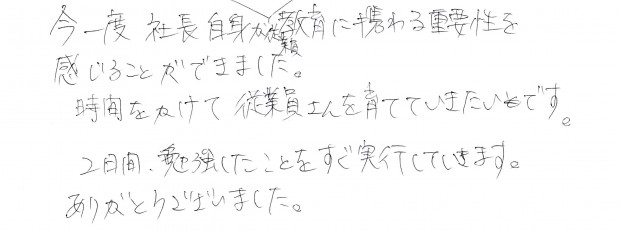 今一度 社長自身が従業員教育に携わる重要性を
感じることができました。
時間をかけて従業員さんを育てていきたいです。
2日間、勉強したことをすぐ実行していきます。
ありがとうございました。